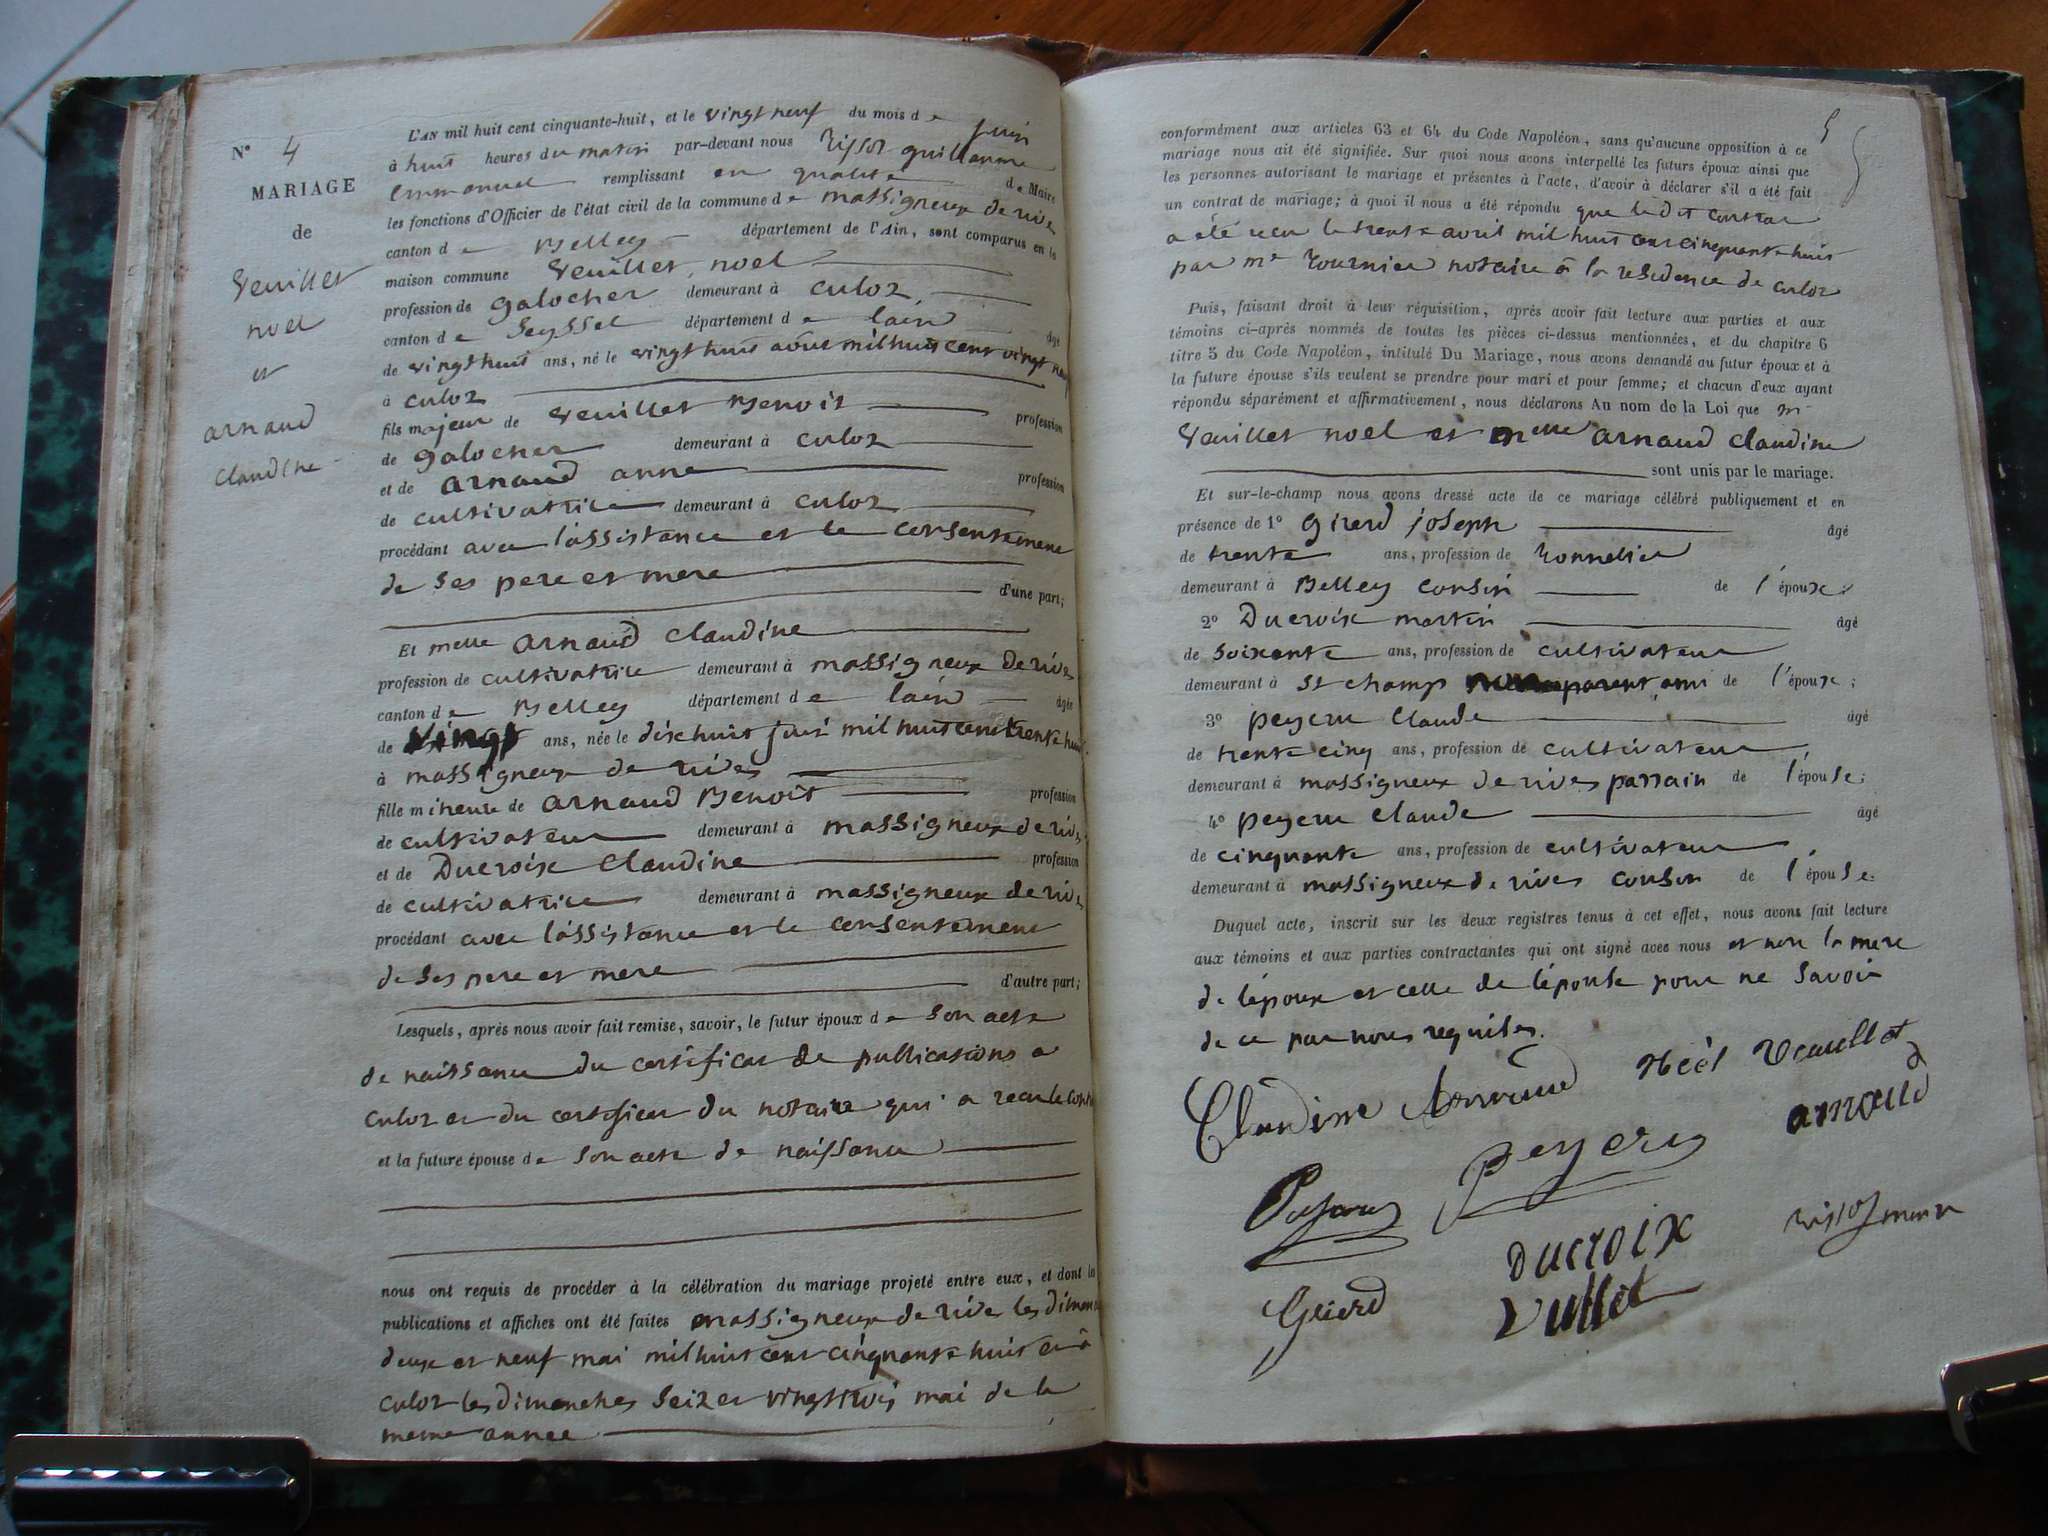 N° 4
MARIAGE
de
Veuillet
noel
et
arnaud
Claudine
L'AN mil huit cent cinquante-huit, et le vingt neuf du mois de juin
à huit heures du matin par-devant nous guillaume
Emmanuel remplissant en qualite de Maire
les fonctions d'Officier de l'état civil de la commune de massigneux de rive
canton de Belley département de l'Ain, sont comparus en la
maison commune Veuillet noel
profession de galocher demeurant à culoz
canton de Seyssel département de lain âgé
de vingt huit ans, né le vingt huit aout mil huit cent vingt neuf
à culoz
fils majeur de Veuillet Benoit profession
de galocher demeurant à culoz
et de arnaud anne profession
de cultivatrice demeurant à culoz
procédant avec l'assistance et le consentement
de ses pere et mere
d'une part;
Et melle arnaud Claudine
profession de cultivatrice demeurant à massigneux de rives
canton de Belley département de lain âgée
de vingt ans, née le dix huit juin mil huit cent trente huit
à massigneux de rives
fille mineure de arnaud Benoit profession
de cultivateur demeurant à massigneux de rive
et de Ducroix Claudine profession
de cultivatrice demeurant à massigneux de rives
procédant avec l'assistance et le consentement
de ses pere et mere
d'autre part;
Lesquels, après nous avoir fait remise, savoir, le futur époux de son acte
de naissance du certificat de publications a
culoz et du certificat du notaire qui a recu le
et la future épouse de son acte de naissance
nous ont requis de procéder à la célébration du mariage projeté entre eux, et dont les
publications et affiches ont été faites massigneux de rive les
deux et neuf mai mil huit cent cinquante huit et à
culoz les dimanches seize et vingt trois mai de la
meme année
5
conformément aux articles 63 et 64 du Code Napoléon, sans qu'aucune opposition à ce
mariage nous ait été signifiée. Sur quoi nous avons interpellé les futurs époux ainsi que
les personnes autorisant le mariage et présentes à l'acte, d'avoir à déclarer s'il a été fait
un contrat de mariage; à quoi il nous a été répondu que le dit contrat
a été recu le trente avril mil huit cent cinquante huit
par me tournier notaire à la residence de culoz
Puis, faisant droit à leur réquisition, après avoir fait lecture aux parties et aux
témoins ci-après nommés de toutes les pièces ci-dessus mentionnées, et du chapitre 6
titre 5 du Code Napoléon, intitulé Du Mariage, nous avons demandé au futur époux et à
la future épouse s'ils veulent se prendre pour mari et pour femme; et chacun d'eux ayant
répondu séparément et affirmativement, nous déclarons Au nom de la Loi que mr
Veuillet noel et melle arnaud Claudine
sont unis par le mariage.
Et sur-le-champ nous avons dressé acte de ce mariage célébré publiquement et en
présence de 1° Girerd joseph âgé
de trente ans, profession de tonnelier
demeurant à Belley cousin de l'époux;
2° Ducroix martin âgé
de soixante ans, profession de cultivateur
demeurant à st champ ami de l'époux;
3° peyeru Claude âgé
de trente cinq ans, profession de cultivateur
demeurant à massigneux de rives parrain de l'épouse;
4° peyeru Claude âgé
de cinquante ans, profession de cultivateur
demeurant à massigneux de rives cousin de l'épouse.
Duquel acte, inscrit sur les deux registres tenus à cet effet, nous avons fait lecture
aux témoins et aux parties contractantes qui ont signé avec nous et non la mere
de l'époux et celle de l'épouse pour ne savoir
de ce par nous requises.
Claudine Arnaud Noël Veuillet
arnaud
peyeru
Ducroix
Girerd Vullet